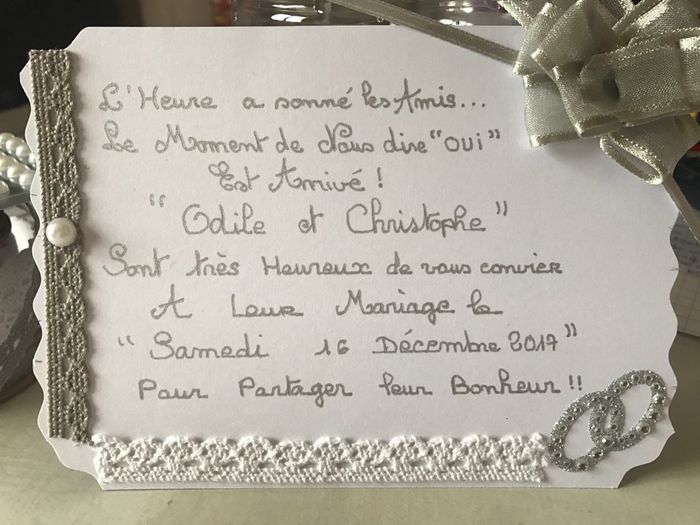 L'Heure a sonné les Amis...
Le Moment de Nous dire "oui"
Est Arrivé !
"Odile et Christophe"
Sont très Heureux de vous convier
A Leur Mariage le
"Samedi 16 Décembre 2017"
Pour Partager leur Bonheur !!